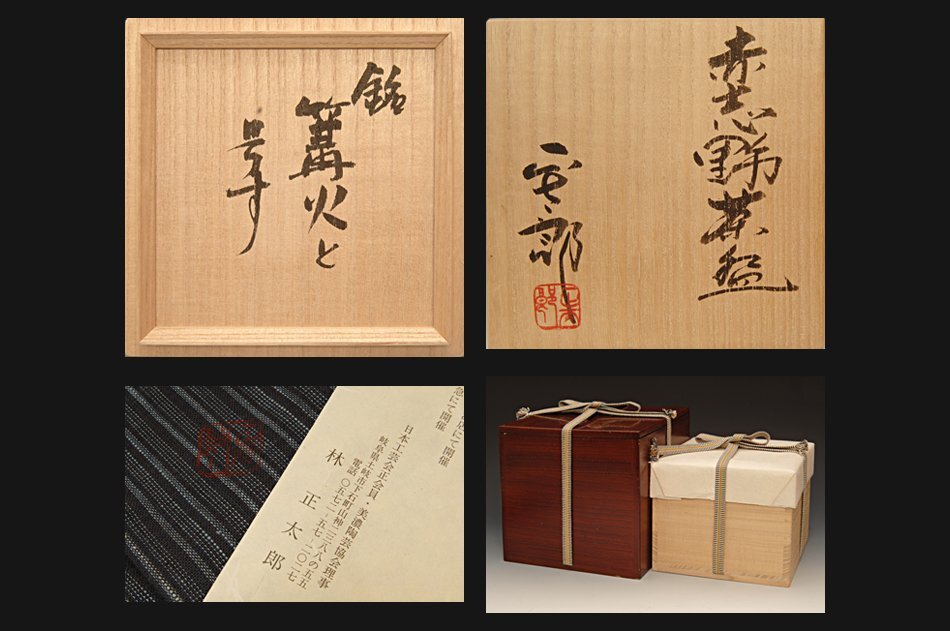 銘
篝火と
号す
赤志野茶盌
正太郎
店にて 開催
急にて 開催
日本工芸会正会員・美濃陶芸協会理事
岐阜県土岐市下石町山神二三八八の五五
電話 〇五七二-五七-二〇二七
林 正太郎